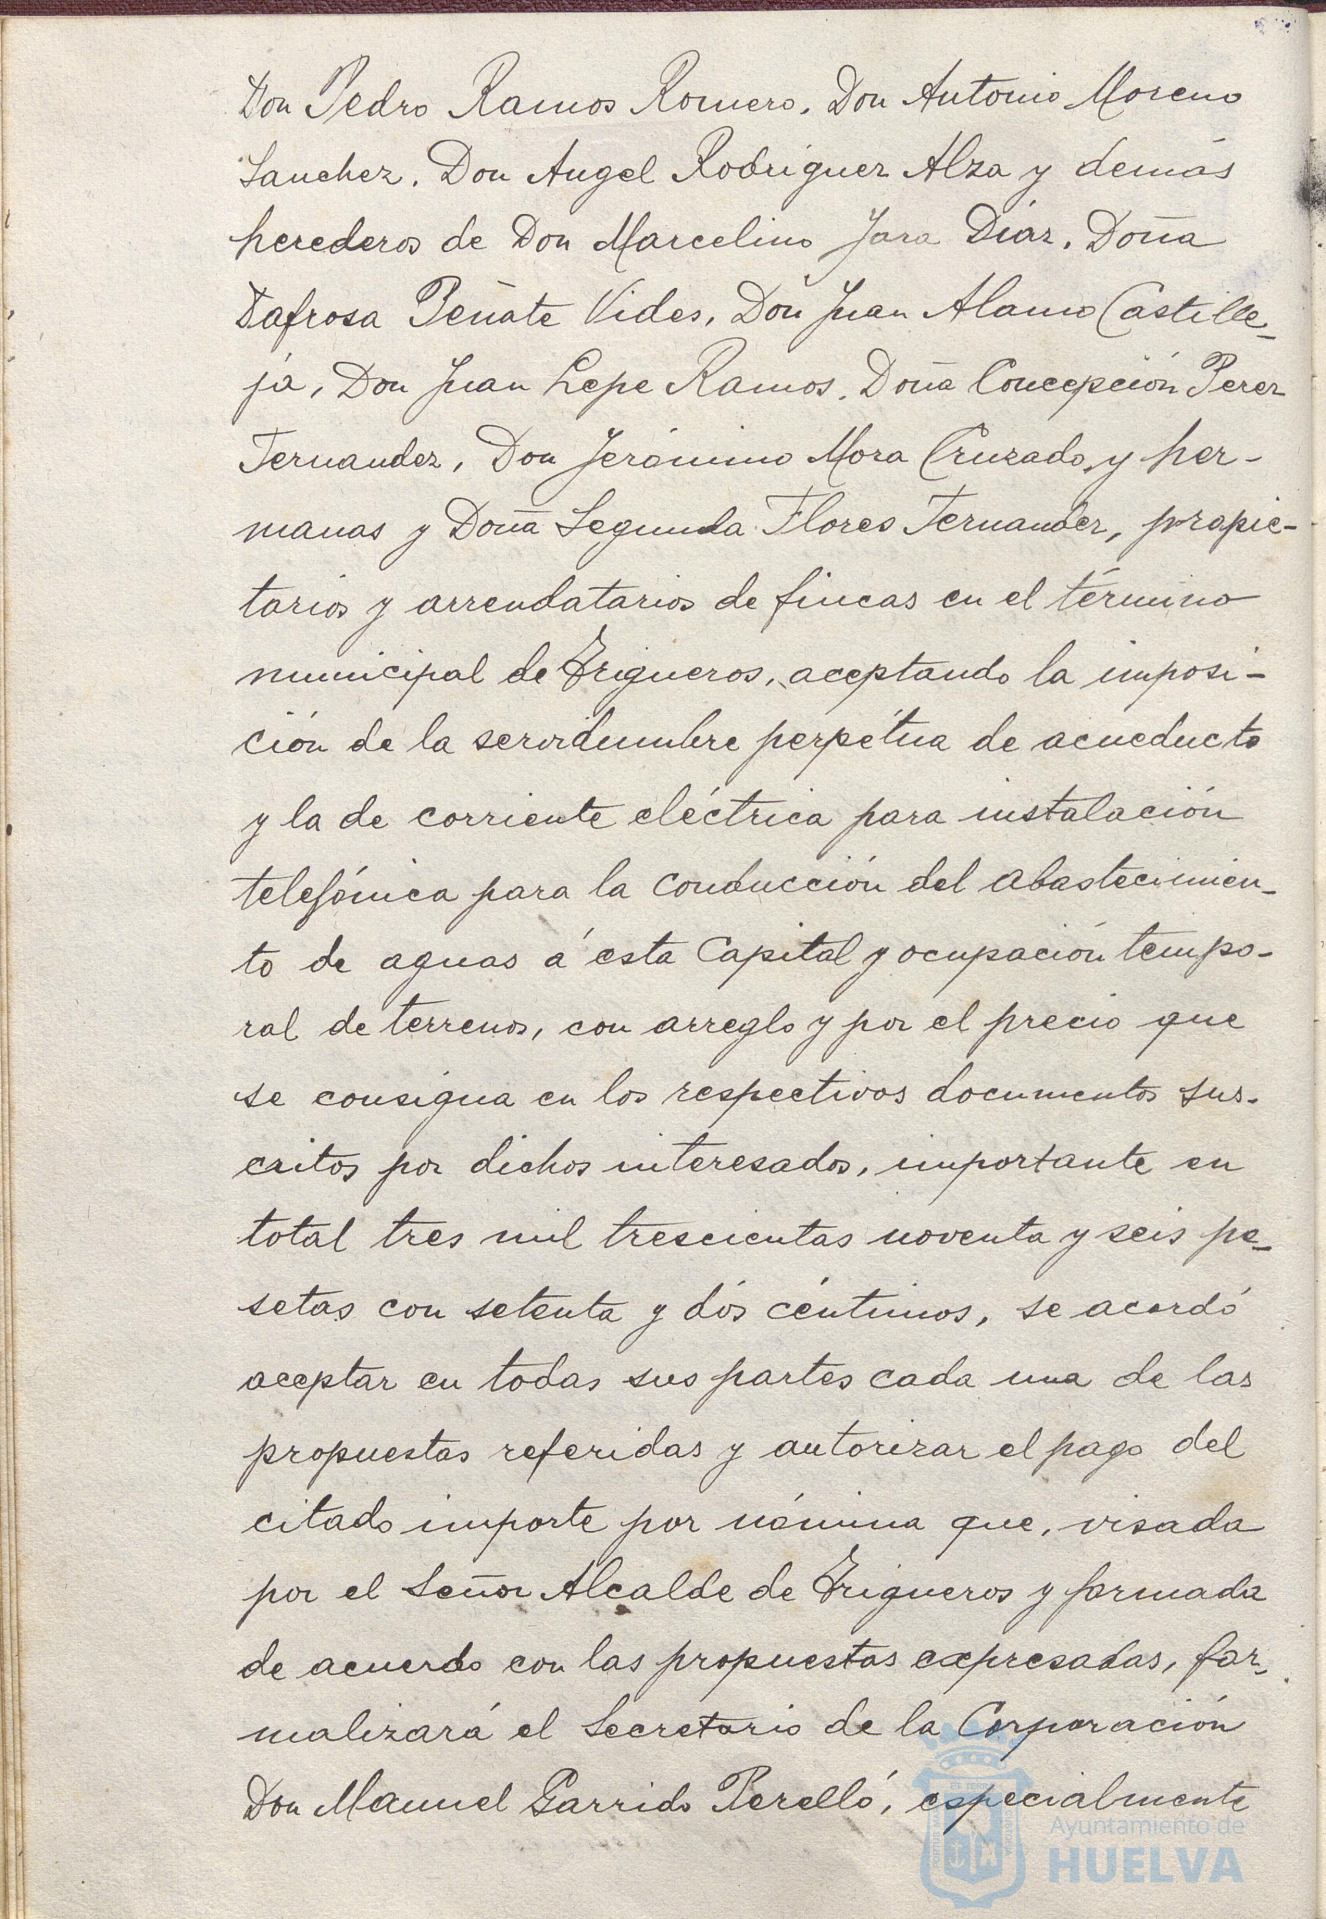 Don Pedro Ramos Romero, Don Antonio Moreno
Sanchez, Don Angel Rodriguez Alza y demás
herederos de Don Marcelino Jara Diáz, Doña
Dafrosa Peñate Vides, Don Juan Alamo Castille-
ja, Don Juan Lepe Ramos, Doña Concepción Perez
Fernandez, Don Jerónimo Mora Cruzado, y her-
manas y Doña Segunda Flores Fernandez, propie-
tarios y arrendatarios de fincas en el término
municipal de Trigueros, aceptando la imposi-
ción de la servidumbre perpétua de acueducto
y la de corriente eléctrica para instalación
telefónica para la conducción del abastecimien-
to de aguas á esta Capital y ocupación tempo-
ral de terrenos, con arreglo y por el precio que
se consigna en los respectivos documentos sus-
critos por dichos interesados, importante en
total tres mil trescientas noventa y seis pe-
setas con setenta y dós céntimos, se acordó
aceptar en todas sus partes cada una de las
propuestas referidas y autorizar el pago del
citado importe por nómina que, visada
por el Señor Alcalde de Trigueros y formada
de acuerdo con las propuestas expresadas, for-
malizará el Secretario de la Corporación
Don Manuel Garrido Perelló, especialmente
Ayuntamiento de
HUELVA